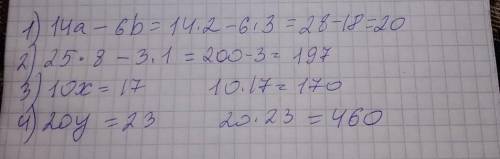 1) 14a - 6b = 14·2 - 6·3 = 28-18=20
2) 25·8 - 3·1 = 200-3= 197
3) 10x = 17 10·17= 170
4) 20y = 23 20·23 = 460